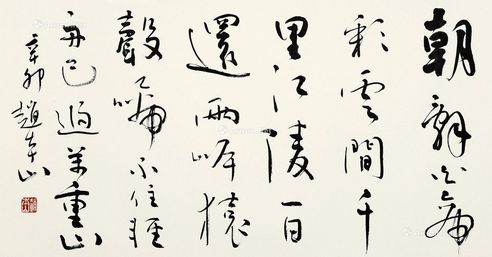 朝辭白帝
彩雲間千
里江陵一日
還兩岸猿
聲啼不住輕
舟已過萬重山
辛卯趙本山